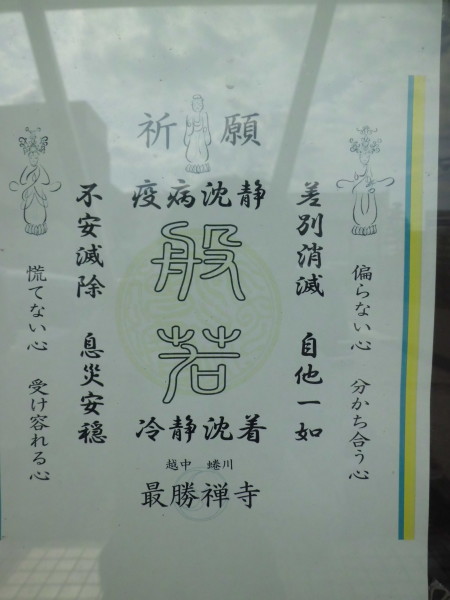 祈願
疫病沈静
般若
冷静沈着
越中 蜷川
最勝禅寺
偏らない心 分かち合う心
差別消滅 自他一如
不安滅除 息災安穏
慌てない心 受け容れる心